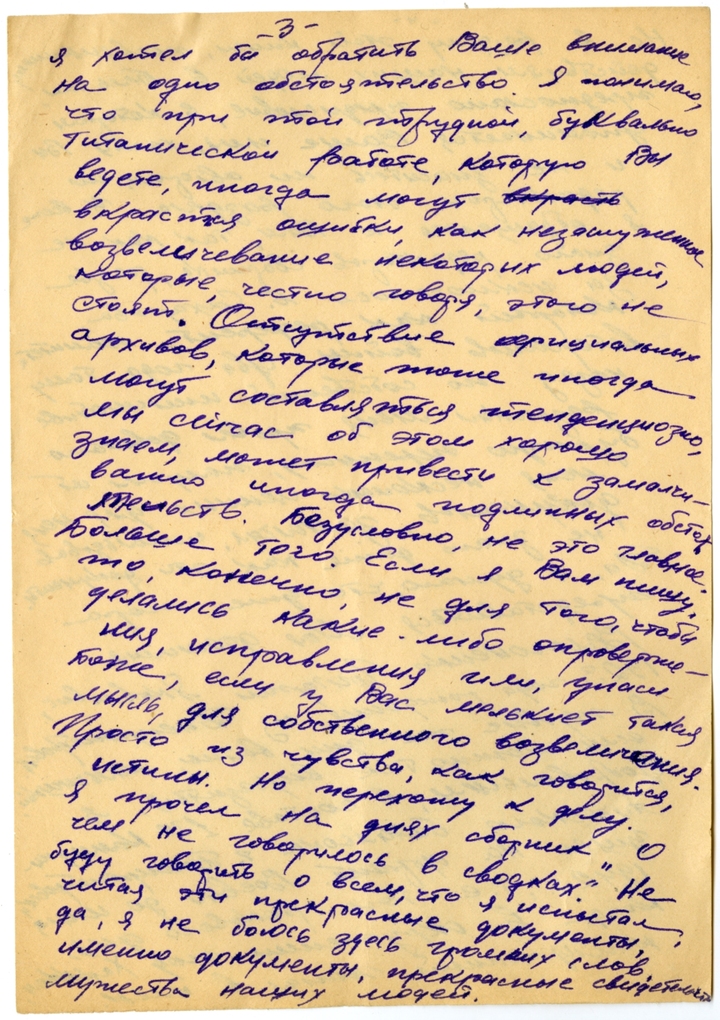 -3-
я хотел бы обратить Ваше внимание
на одно обстоятельство. Я понимаю,
что при этой трудной, буквально
титанической работе, которую Вы
ведете, иногда могут вкрасть
вкрасться ошибки, как незаслуженное
возвеличевание некоторых людей,
которые, честно говоря, этого не
стоят. Отсутствие официальных
архивов, которые тоже иногда
могут составляться тенденциозно,
мы сейчас об этом хорошо
знаем, может привести к замалчи-
ванию иногда подлинных обстоя
тельств. Безусловно, не это главное.
Больше того. Если я Вам пишу,
то, конечно, не для того, чтобы
делались какие-либо опроверже-
ния, исправления или, упаси
боже, если у Вас мелькнет такая
мысль, для собственного возвеличения.
Просто из чувства, как говорится,
истины. Но перехожу к делу.
Я прочел на днях сборник "О
чем не говорилось в сводках." Не
буду говорить о всем, что я испытал,
читая эти прекрасные документы,
да, я не боюсь здесь громких слов,
именно документы, прекрасные свидетельства
мужества наших людей.